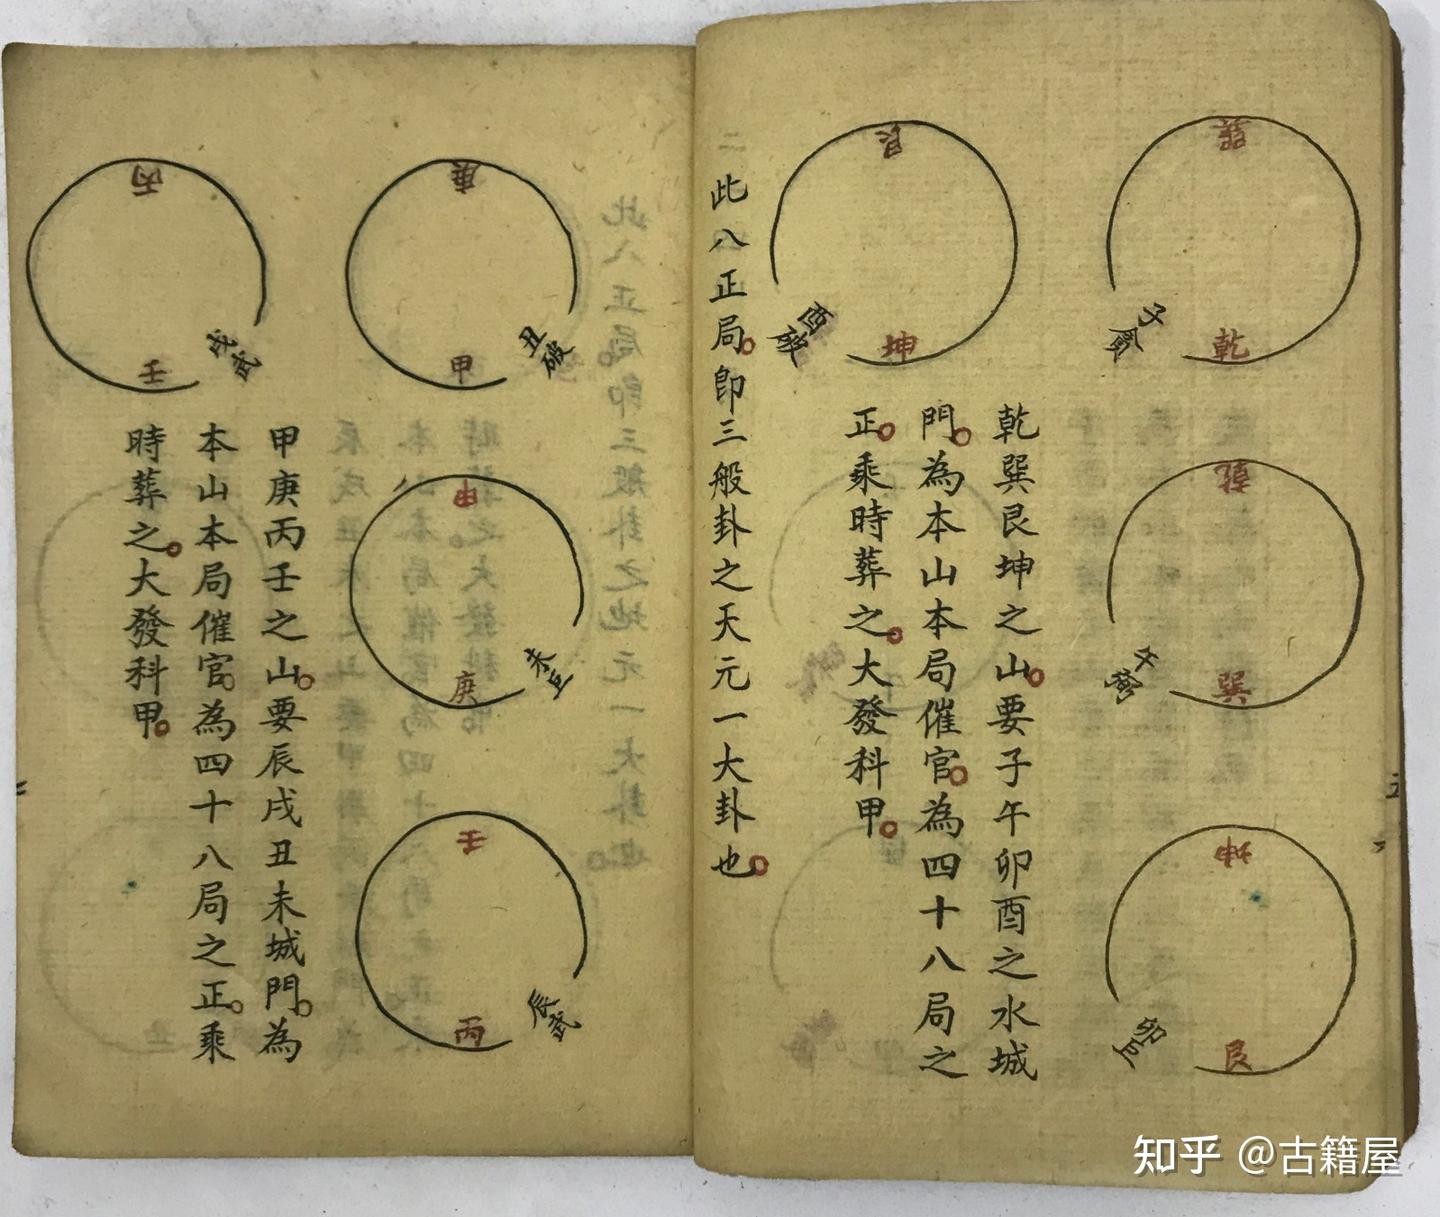 巽
子貪
乾
乾
午
巽
坤
卯巨
艮
艮
酉破
坤
乾巽艮坤之山要子午卯酉之水城
門為本山本局催官為四十八局之
正乘時葬之大發科甲
此八正局即三般卦之天元一大卦也
庚
丑破
甲
甲
未巨
庚
壬
辰武
丙
丙
戌武
壬
甲庚丙壬之山要辰戌丑未城門為
本山本局催官為四十八局之正乘
時葬之大發科甲
知乎 @古籍屋